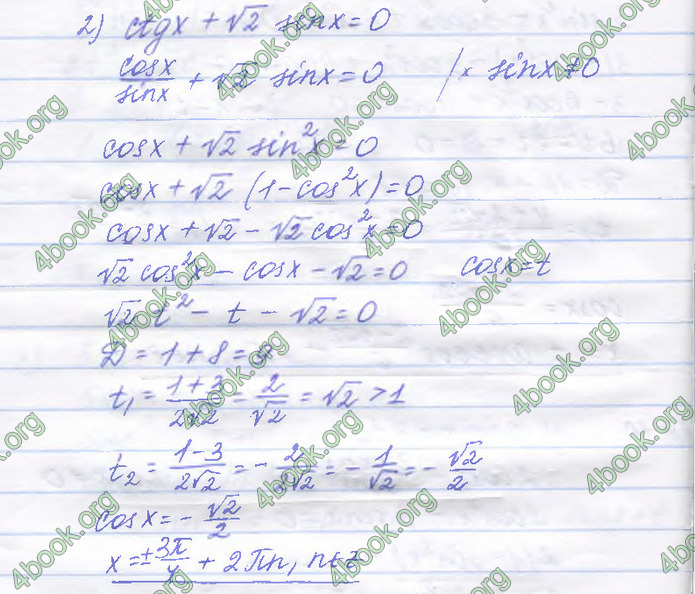 2) ctgx + √2 sinx = 0
cosx/sinx + √2 sinx = 0 /× sinx ≠ 0
cosx + √2 sin²x = 0
cosx + √2 (1 - cos²x) = 0
cosx + √2 - √2 cos²x = 0
√2 cos²x - cosx - √2 = 0 cosx = t
√2 t² - t - √2 = 0
D = 1 + 8 =
t₁ = (1+3)/(2√2) = 2/√2 = √2 > 1
t₂ = (1-3)/(2√2) = - 2/(2√2) = - 1/√2 = - √2/2
cosx = - √2/2
x = ± 3π/4 + 2πn, n∈z
4book.org